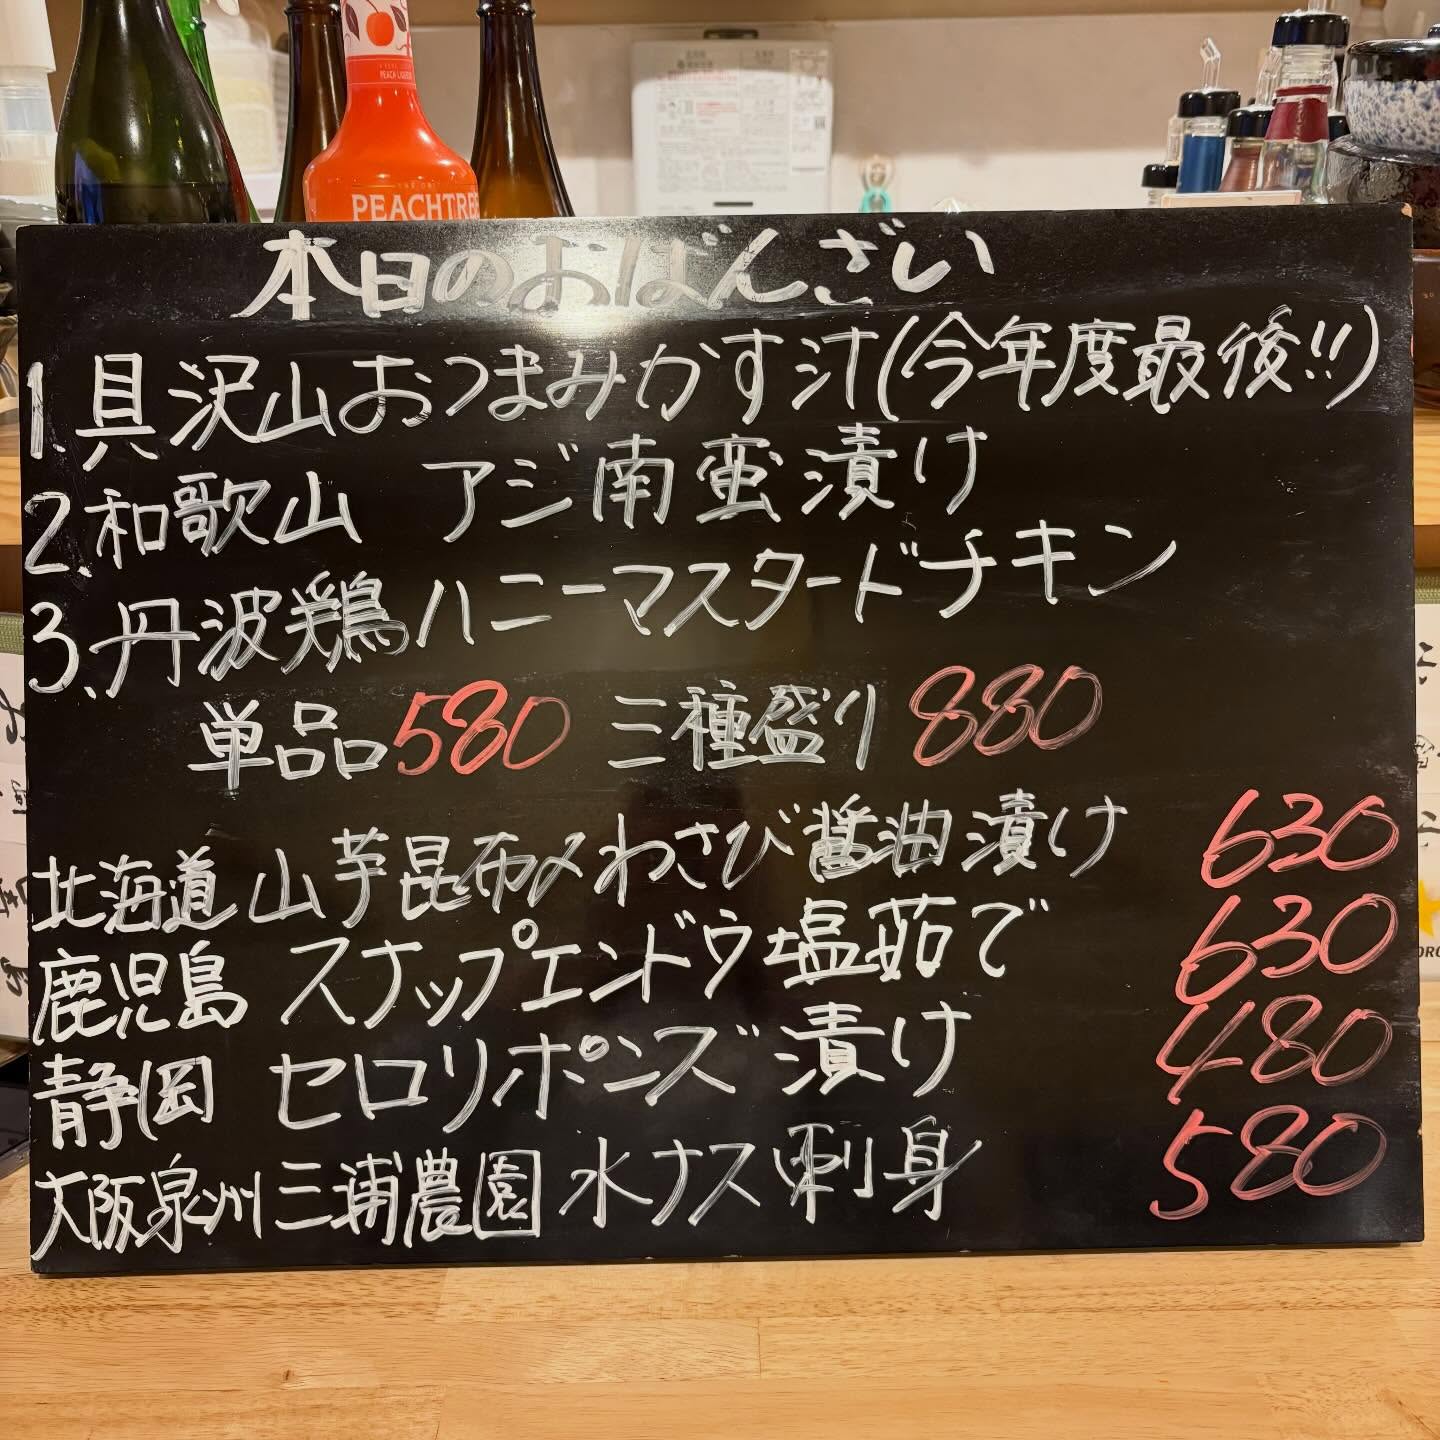 PEACH LIQUEUR
PEACHTREE
本日のおばんざい
1.具沢山おつまみかす汁(今年度最後!!)
2.和歌山 アジ南蛮漬け
3.丹波鶏ハニーマスタードチキン
単品580 三種盛り880
北海道 山芋昆布〆わさび醤油漬け 630
鹿児島 スナップエンドウ塩茹で 630
静岡 セロリポンズ漬け 480
大阪泉州三浦農園 水ナス刺身 580